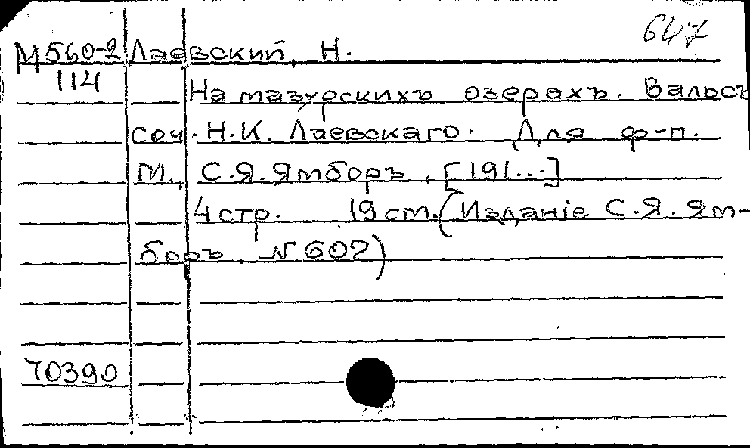 647
М560-2 Лаевский, Н.
114
На мазурскихъ озерахъ. Вальсъ
соч. Н.К. Лаевскаго. Для ф-п.
М., С.Я. Ямборъ, [191...]
4 стр. 19 ст. (Изданіе С.Я. Ям-
боръ, N 602)
70390